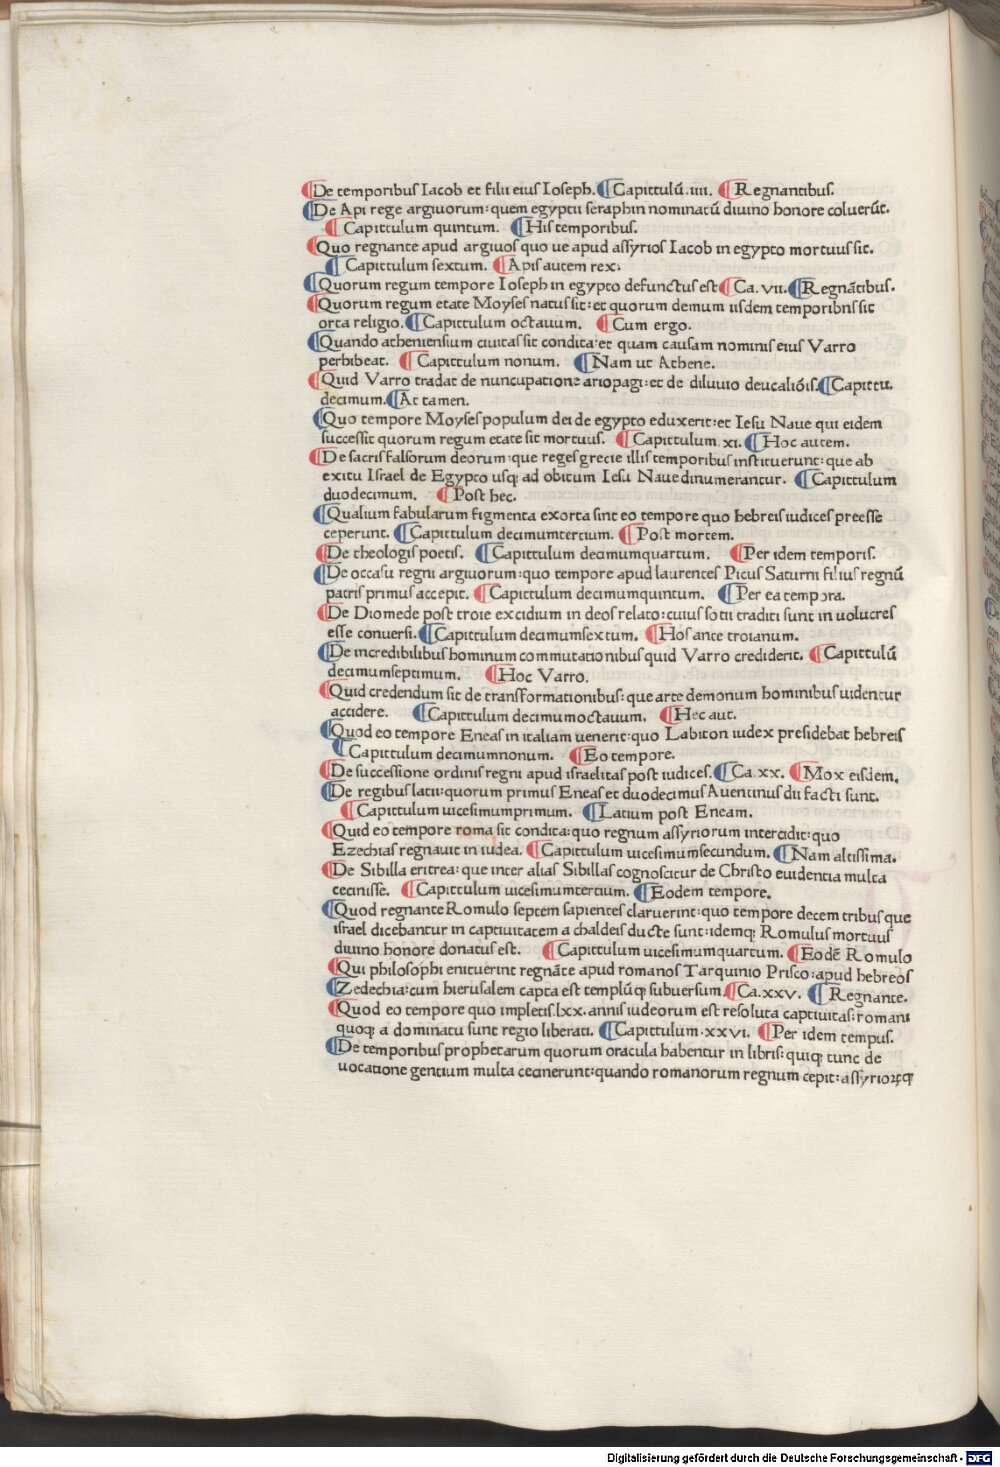 ¶De temporibus Iacob et filii eius Ioseph. ¶Capittulū .iiii. ¶Regnantibus.
¶De Api rege argiuorum: quem egyptii seraphin nominatū diuino honore coluerūt.
¶Capittulum quintum. ¶His temporibus.
¶Quo regnante apud argiuos quo ue apud assyrios Iacob in egypto mortuus sit.
¶Capittulum sextum. ¶Apis autem rex:
¶Quorum regum tempore Ioseph in egypto defunctus est ¶Ca. vii. ¶Regnātibus.
¶Quorum regum etate Moyses natus sit: et quorum demum iisdem temporibns sit
orta religio. ¶Capittulum octauum. ¶Cum ergo.
¶Quando atheniensium ciuitas sit condita: et quam causam nominis eius Varro
perhibeat. ¶Capittulum nonum. ¶Nam ut Athene.
¶Quid Varro tradat de nuncupatione ariopagi: et de diluuio deucaliōis. ¶Capittu.
decimum. ¶At tamen.
¶Quo tempore Moyses populum dei de egypto eduxerit: et Iesu Naue qui eidem
successit quorum regum etate sit mortuus. ¶Capittulum .xi. ¶Hoc autem.
¶De sacris falsorum deorum: que reges grecie illis temporibus instituerunt: que ab
exitu Israel de Egypto usq; ad obitum Iesu Naue dinumerantur. ¶Capittulum
duodecimum. ¶Post hec.
¶Qualium fabularum figmenta exorta sint eo tempore quo hebreis iudices preesse
ceperunt. ¶Capittulum decimumtertium. ¶Post mortem.
¶De theologis poetis. ¶Capittulum decimumquartum. ¶Per idem temporis.
¶De occasu regni argiuorum: quo tempore apud laurentes Picus Saturni filius regnū
patris primus accepit. ¶Capittulum decimumquintum. ¶Per ea tempora.
¶De Diomede post troie excidium in deos relato: cuius sotii traditi sunt in uolucres
esse conuersi. ¶Capittulum decimumsextum. ¶Hos ante troianum.
¶De incredibilibus hominum commutationibus quid Varro crediderit. ¶Capittulū
decimumseptimum. ¶Hoc Varro.
¶Quid credendum sit de transformationibus: que arte demonum hominibus uidentur
accidere. ¶Capittulum decimumoctauum. ¶Hec aut.
¶Quod eo tempore Eneas in italiam uenerit: quo Labiton iudex presidebat hebreis
¶Capittulum decimumnonum. ¶Eo tempore.
¶De successione ordinis regni apud israelitas post iudices. ¶Ca. xx. ¶Mox eisdem.
¶De regibus latii: quorum primus Eneas et duodecimus Auentinus dii facti sunt.
¶Capittulum uicesimumprimum. ¶Latium post Eneam.
¶Quid eo tempore roma sit condita: quo regnum assyriorum intercidit: quo
Ezechias regnauit in iudea. ¶Capittulum uicesimumsecundum. ¶Nam altissima.
¶De Sibilla eritrea: que inter alias Sibillas cognoscitur de Christo euidentia multa
cecinisse. ¶Capittulum uicesimumtertium. ¶Eodem tempore.
¶Quod regnante Romulo septem sapientes claruerint: quo tempore decem tribus que
israel dicebantur in captiuitatem a chaldeis ducte sunt: idemq; Romulus mortuus
diuino honore donatus est. ¶Capittulum uicesimumquartum. ¶Eodē Romulo
¶Qui philosophi enituerint regnāte apud romanos Tarquinio Prisco: apud hebreos
¶Zedechia: cum hierusalem capta est templūq; subuersum. ¶Ca. xxv. ¶Regnante.
¶Quod eo tempore quo impletis .lxx. annis iudeorum est resoluta captiuitas: romani
quoq; a dominatu sunt regio liberati. ¶Capittulum .xxvi. ¶Per idem tempus.
¶De temporibus prophetarum quorum oracula habentur in libris: quiq; tunc de
uocatione gentium multa cecinerunt: quando romanorum regnum cepit: assyrioꝝq;
Digitalisierung gefördert durch die Deutsche Forschungsgemeinschaft - DFG